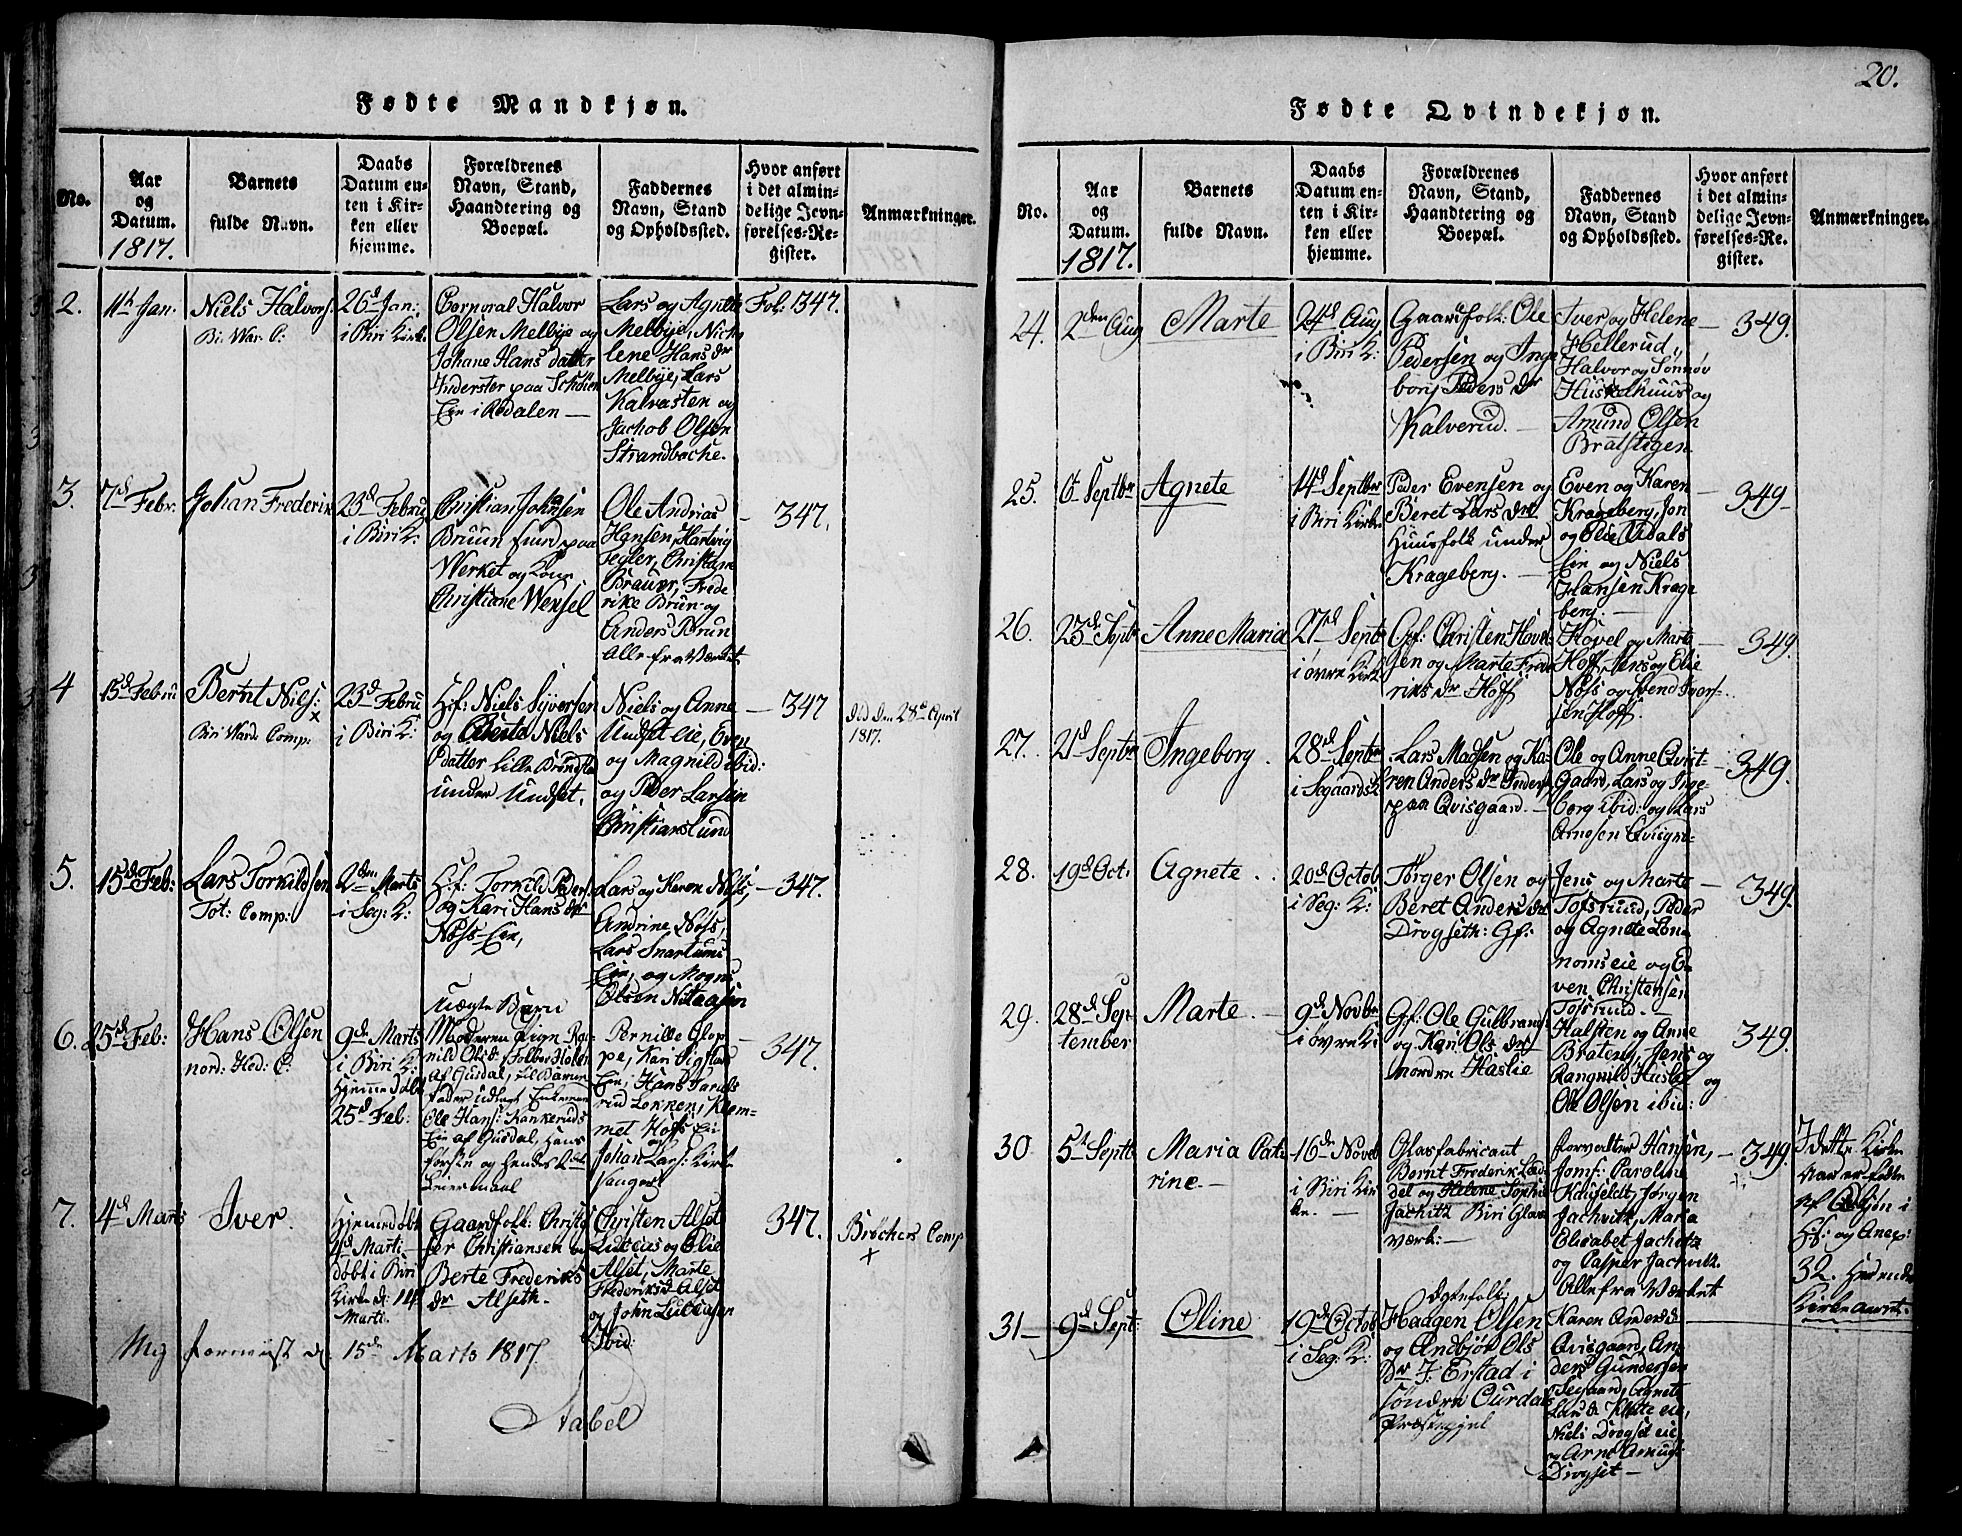 20.
Fødte Mandkjøn.
No.
Aar
og
Datum.
1817.
Barnets
fulde Navn.
Daabs
Datum en-
ten i Kir-
ken eller
hjemme.
Forældrenes
Navn, Stand,
Haandtering og
Boepæl.
Faddernes
Navn, Stand
og Opholdssted.
Hvor anført
i det almin-
delige Jevn-
førelses-Re-
gister.
Anmærkninger.
2.
Jan.
Niels Halvors:
26d Jan:
i Biri Kirke
Corporal Halvor
Olsen Melbye og
Johane Hans datter
Inderster paa
Eie i Redalen —
Lars og Agnethe
Melbye,
lene Hans dr
Melbye, Lars
Kalvasten og
Jachob Olsen
Strandboche.
Fol: 1347.
3.
7d Febr.
Johan Frederik
23d Febru
i Biri K:
Christian Johnsen
Bruun paa
Werket og Kone
Christiane Wensel
Ole Andrias
Hansen, Hartvig
Tegler, Christiane
Brauer, Frede
rike Brun og
Anders Brun
Alle fra Værket
347.
4
15d Febru
Bernt Niels:
Biri Ward Comp:
23d Febru
i Biri K:
Hf: Niels Syversen
og Niels
datter Lille
under Undset.
Niels og Anne
Undset eie, Even
og Magnild ibid:
og Peder Larsen
Christianslund
347
Død Den 28d April
1817.
5.
15d Feb:
Lars Torkildsen
Tot: Comp:
2den Marts
i Seg: K:
Hf: Torkild Peders
og Kari Hans dr
Næss-Eie,
Lars og Karen Næss,
Andrine Næss,
Lars Snartums
Eie, og Mogns
Olsen
347.
6.
25d Feb:
Hans Olsen
nord: Hed: C:
9de Marts
i Biri K:
Hjemme Døbt
25d Feb:
Uægte Barn
Moderen Pigen
nild Ols dr
af Gusdal, til Barne
fader udlagt Enkemand
Ole Hans: Kankeruds
Eie af Gusdal, Hans
første og hendes
Leiermaal
Pernille Glop-
pe, Kari
Eie, Hans
rud Løkken, Klem-
met Hoffs Eie
Johan Lars: Kirke
sanger
347.
7.
4d Marts
Iver.
Hjemmedøbt
4d Marti —
Døbt i Biri
Kirke d: 14
Marti.
Gaardfolk: Christof
fer Christiansen og
Berte Frederiks
dr Alseth.
Christen Alset
Luccas og Olie
Alset, Marte
Frederiksd Alset
og John Luccasen
Ibid:
347.
Brøchers Comp
Mig forevist d. 15de Marts 1817.
Stabel
Fødte Qvindekjøn.
No.
Aar
og
Datum.
1817.
Barnets
fulde Navn.
Daabs
Datum en-
ten i Kir-
ken eller
hjemme.
Forældrenes
Navn, Stand,
Haandtering og
Boepæl.
Faddernes
Navn, Stand
og Opholdssted.
Hvor anført
i det almin-
delige Jevn-
førelses-Re-
gister.
Anmærkninger.
24.
2den Aug
Marte
24d Aug
i Biri K:
Gaardfolk: Ole
Pedersen og Inge
borg Peders dr
Kalverud. —
Iver og Helene
Hellerud,
Halvor og Sønnøv
Huskelhuus og
Amund Olsen
Bratstigen.
349.
25.
6t Septbr
Agnete
14d Septbr
i Biri Kirke
Peder Evensen og
Beret Lars dr
Huusfolk under
Krageberg. —
Even og Karen
Krageberg, Jon
og
Eie og Niels
Hansen Krage
berg. —
349
26.
23d Septbr
Anne Maria
27d Septbr
i øvre Kirk:
Gf: Christen Hovel
sen og Marte Frede
riks dr Hoff
Hovel og Marte
Hoff, Jens og Elie
Næss og Svend Iver-
sen Hoff.
349.
27.
21d Septbr
Ingeborg.
28d Septbr
i Segaards K:
Lars Madsen og Ka-
ren Anders dr Inders
paa Qvisgaard. —
Ole og Anne Qvist-
Gaard, Lars og Inge-
borg ibid: og Lars
Arnesen
349.
28.
19d Oct:
Agnete
20d Octob
i Seg: K:
Tørger Olsen og
Beret Anders dr
Drogseth: Gf:
Jens og Marte
Tofsrud, Peder
og Agnete Løne
noms eie og E-
ven Christensen
Tofsrud.
349.
29.
28d Sep-
tember
Marte. —
9d Novbr
i øvre K:
Gf: Ole Gulbrands:
og Kari Ols dr
nordre Haslie
Halsten og Anne
Brateng, Jens og
Rangnild Huslie og
Ole Olsen ibid:
349.
30
5t Septb
Maria Cat:
rine. —
16de Novb
i Biri Kir
ke. —
Glasfabricant
Bernt Frederik
del og Helene Sophie
Jachvitz Biri Glas
værk: —
forvalter Hansen,
Jomf: Caroline
Kaufeldt, Jørgen
Jachvitz, Maria
Elisabet Jachvitz
og Casper Jachvitz
Alle fra Værket
349.
I dette Kirke
Aar er fødte
af i
Hf: og
32. Herunder
Kirke aaret.
31 —
9d Sept:
Oline
19de Octob
i Seg: K:
Ægtefolk:
Haagen Olsen
og Andbjør Ols
Dr I: Erstad i
søndre Ourdals
Præstegjel
Karen Andersd
Qvisgaard, An-
ders Gundersen
Segaard, Agnete
Lars dr Klette eie,
Niels Drogset eie
og Arne
Drogset —